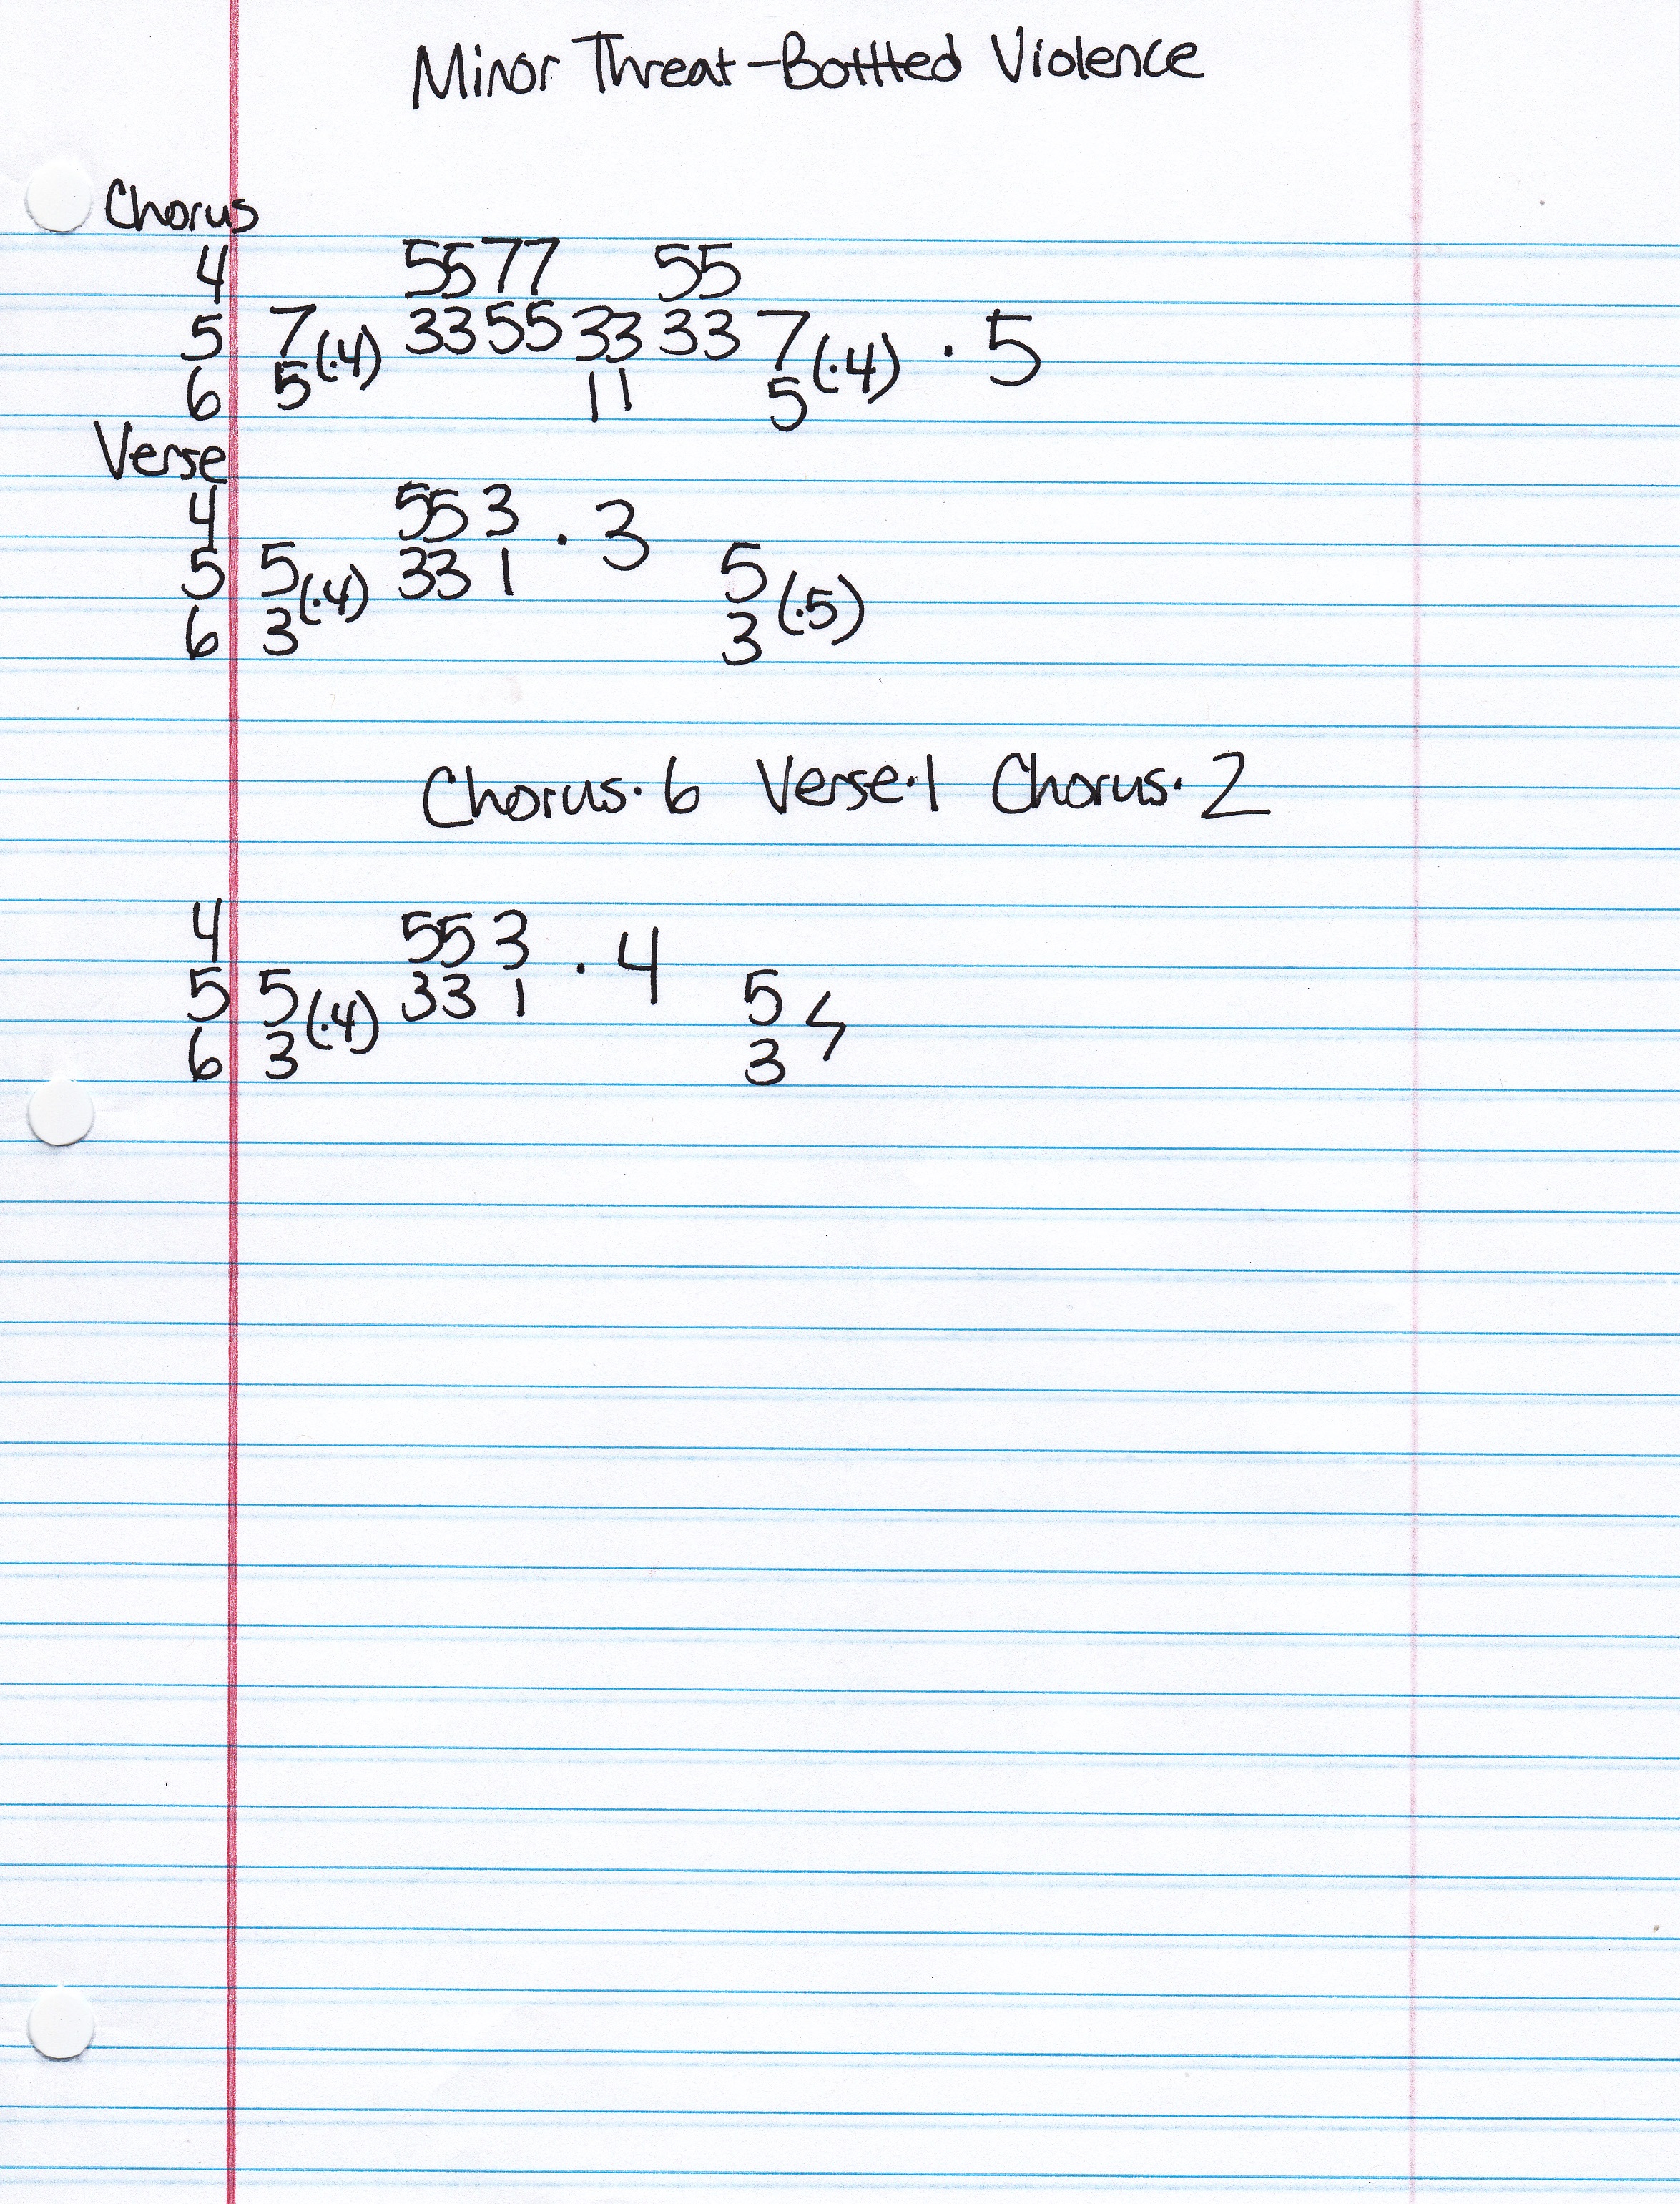 Minor Threat-Bottled Violence
Chorus
4 5577 55
5 7(·4) 33 55 33 33 7(·4) · 5
6 5 11 5
Verse
4 55 3 · 3
5 5(·4) 33 1 5(·5)
6 3 3
Chorus·6 Verse·1 Chorus·2
4 55 3 · 4
5 5(·4) 33 1 5
6 3 3